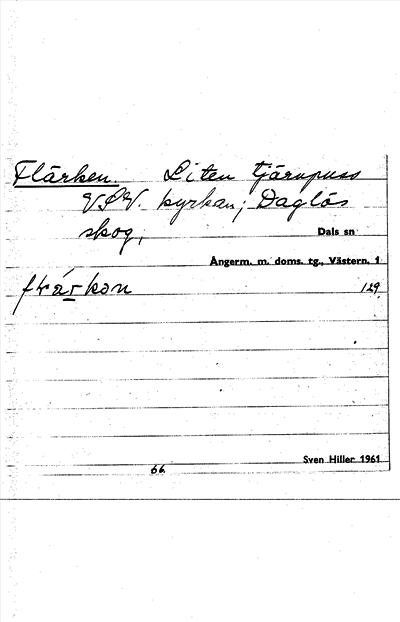 Flärken. Liten tjärnpuss
V.S.V. kyrkan; Daglös
skog,
Dals sn
Ångerm. m. doms. tg., Västern. 1
129
Sven Hiller 1961
66